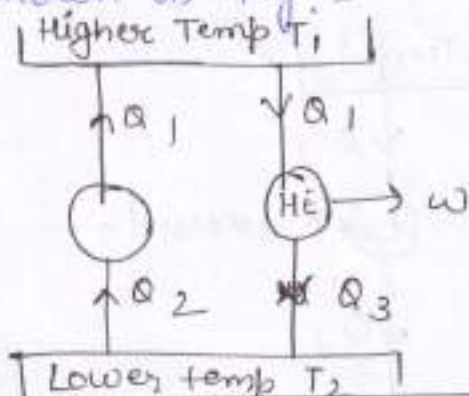 Higher Temp T₁
Q 1
Q 1
HE
w
Q 2
Q 3
Lower temp T₂